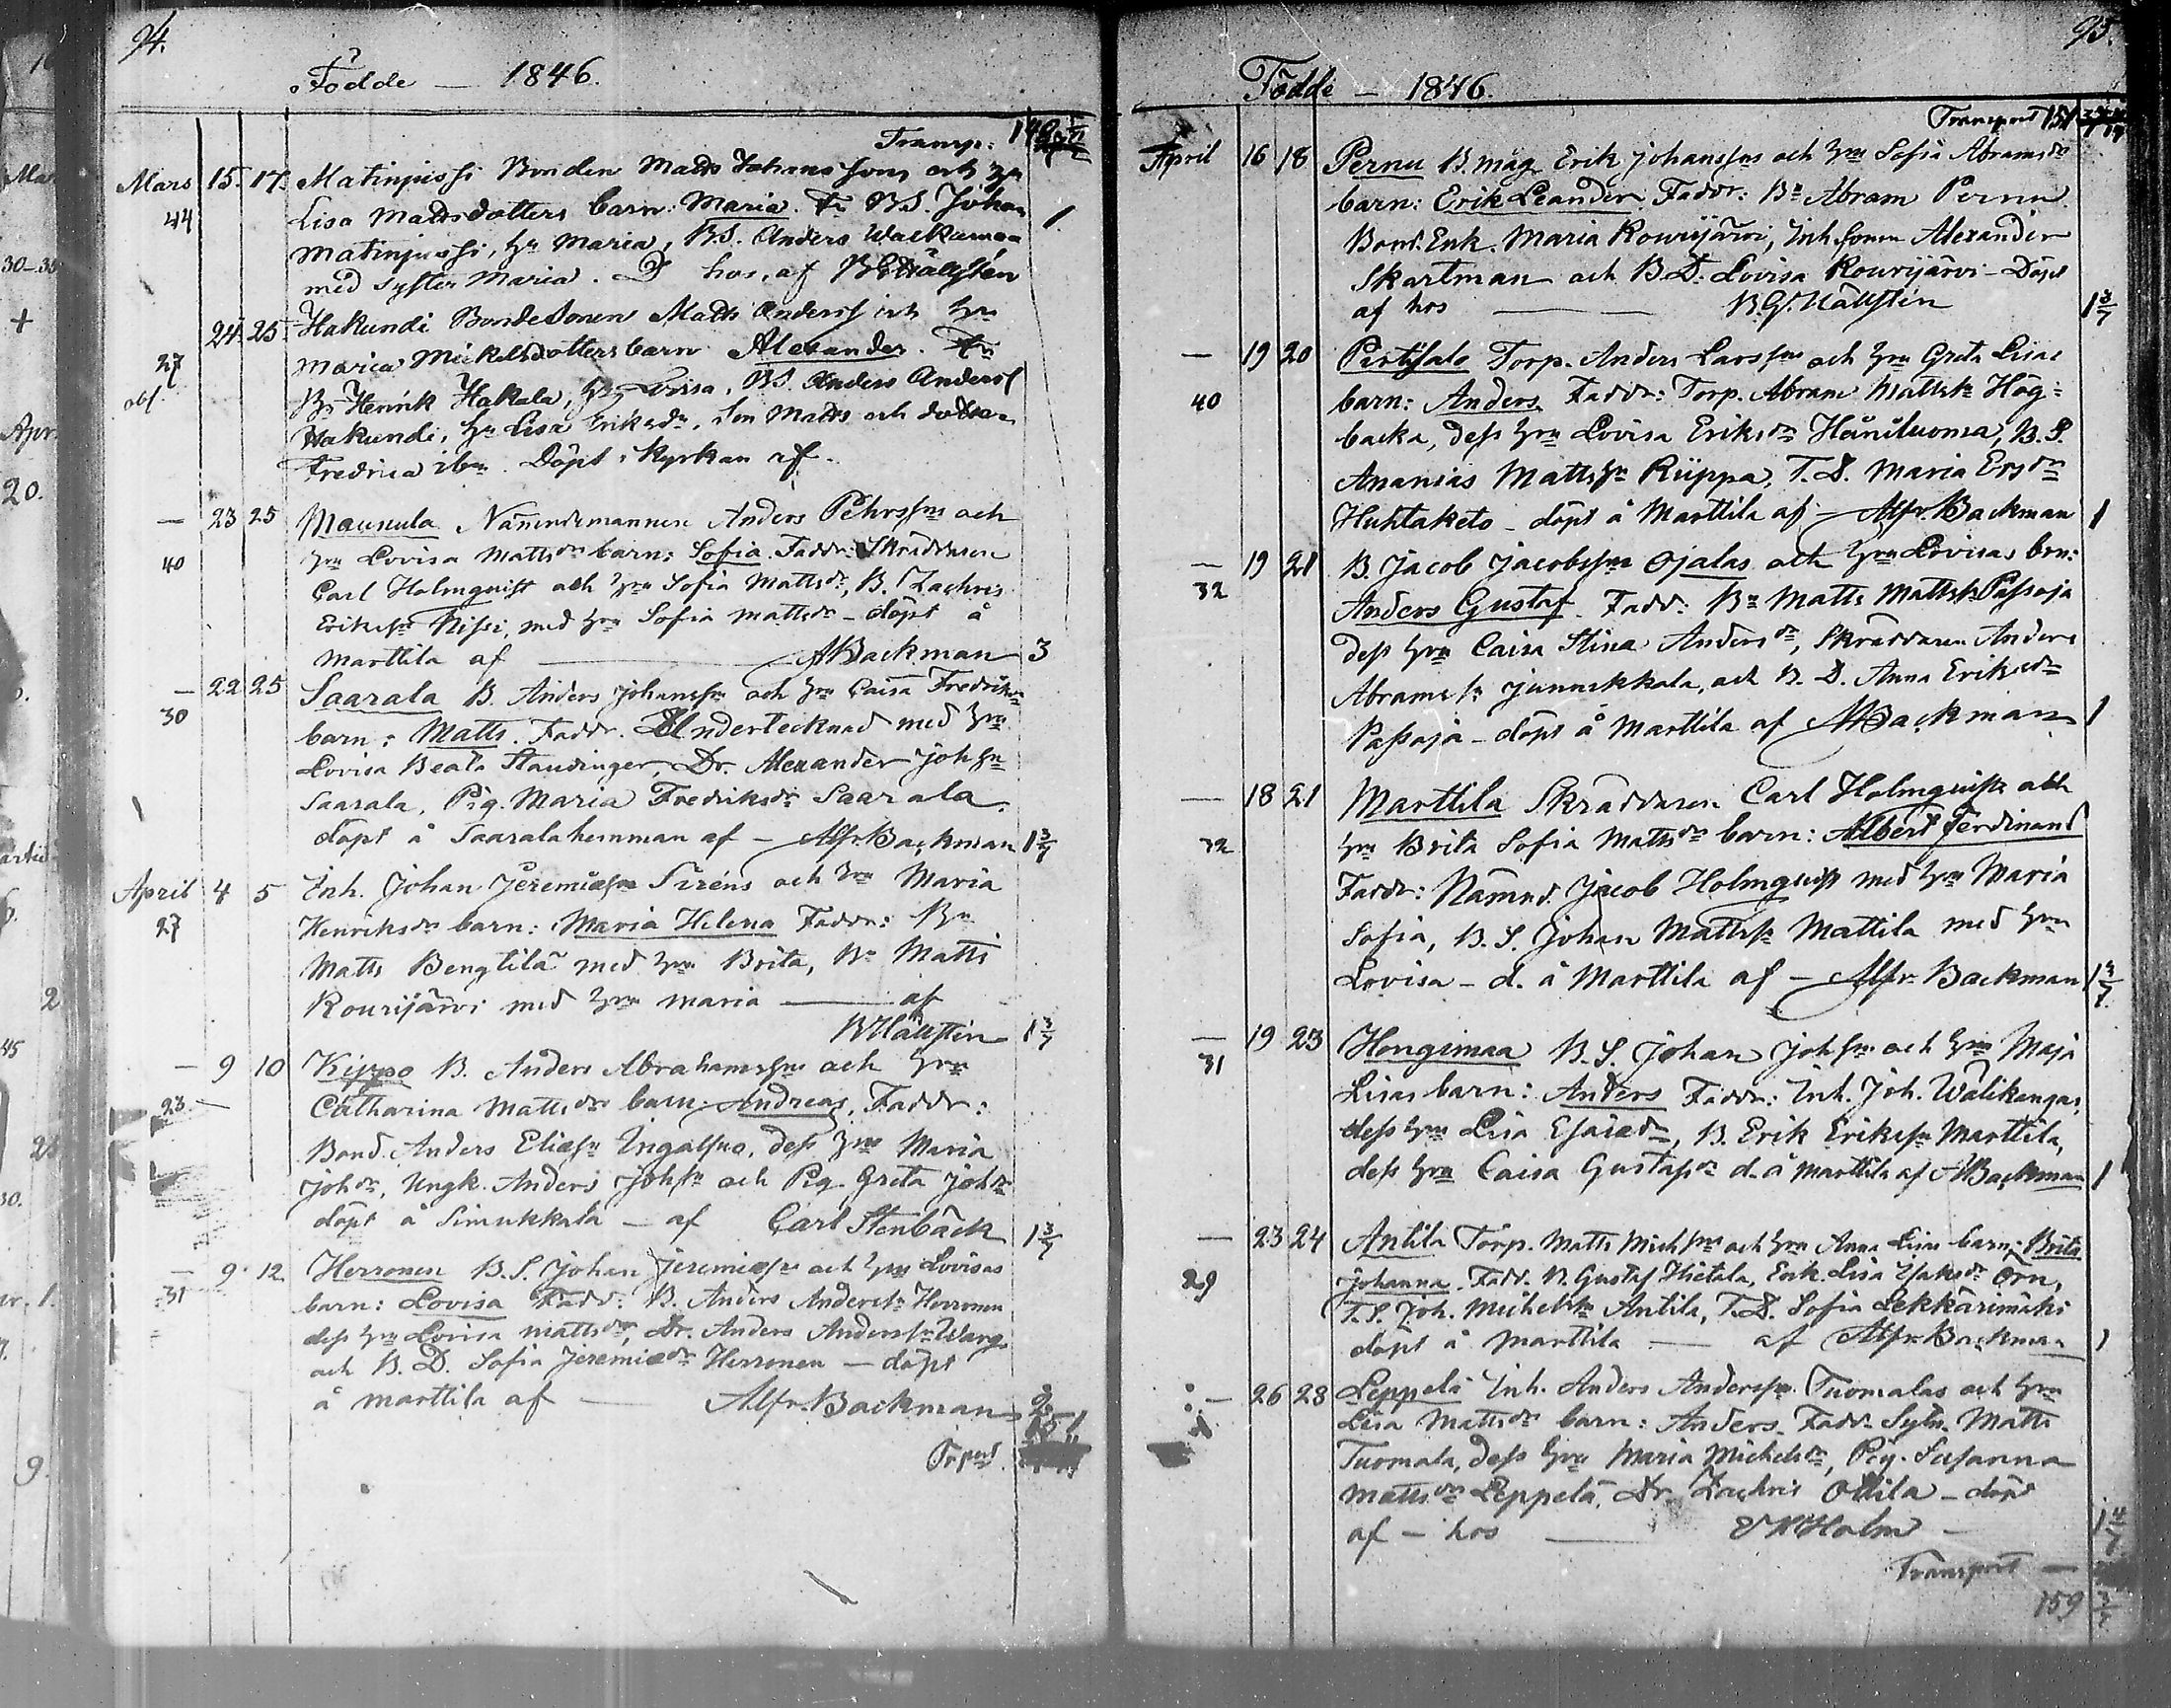 94.
Födde — 1846.
Transp. 140
Mars 15. 17. Matinjussi Bonden Matts Johansson och hu
44 Lisa Mattsdotters barn: Maria. Fr BS. Johan 1.
Matinjussi, hu Maria, B.S. Anders Wackamaa
med syster Maria. D hos, af BGHällsten
24. 25. Hakundi Bondesonen Matts Anderss och hu
27 Maria Mickelsdotters barn Alexander. Fr
obs. Bn Henrik Hakala, hu Lovisa, BS. Anders Anderss
Hakundi, hu Lisa Eriksdr, Son Matts och dotter
Fredrica ibm. Döpt i Kyrkan af.
— 23 25 Maunula Nämndemannen Anders Pehrssons och
40 hru Lovisa Mattsdrs barn: Sofia. Faddr: Skräddaren
Carl Holmquist och hru Sofia Mattsdr, B. Zachris
Eriksson Nissi, med hru Sofia Mattsdr — döpt å
Marttila af — ABackman 3
— 22 25 Saarala B. Anders Johansson och hru Caisa Fredriksdr
30 barn: Matts. Faddr. Undertecknad med hru
Lovisa Beata Staudinger, Dr. Alexander Johsn
Saarala, Pig. Maria Fredriksdr Saarala.
döpt å Saarala hemman af — Alfr. Backman 1 3/7
April 4 5 Inh. Johan Jeremiæson Siréns och hru Maria
27 Henriksdrs barn: Maria Helena Faddr: Bn
Matts Bengtilä med hru Brita, Bn Matts
Kourijärvi med hru Maria — af
BHällstén 1 3/7
— 9 10 Kippo B. Anders Abrahamssons och hru
23 — Catharina Mattsdrs barn: Andreas, Faddr:
Bond. Anders Eliæsn Ingalsuo, dess hru Maria
Johdr, Ungk. Anders Johsn och Pig. Greta Johdr
döpt å Simukkala — af Carl Stenbäck 1 3/7
— 9. 12. Herronen B.S. Johan Jeremiæsns och hru Lovisas
31 barn: Lovisa Faddr: B. Anders Anderssn Herronen
dess hru Lovisa Mattsdr, Dr. Anders Anderssn Warg
och B. D. Sofia Jeremiædr Herronen — döpt
å Marttila af — Alfr. Backman 2
151
Trsport
95.
Födde — 1846.
Transport 151
April 16 18 Pernu B. Måg Erik Johanssons och hru Sofia Abramsdrs
barn: Erik Leander, Faddr: Bn Abram Pernu.
Bond. Enk. Maria Kourijärvi, Inh. sonen Alexander
Skartman och B.D. Lovisa Kourijärvi — Döpt
af hos — B.G. Hällstén 1 3/7
— 19 20 Perttsalo Torp. Anders Larssons och hru Greta Lisas
40 barn: Anders. Faddr: Torp. Abram Mattssn Hög=
backa, dess hru Lovisa Eriksdr Heiniluoma, B.S.
Ananias Mattssn Riippa, T.D. Maria Ersdr
Huhtaketo — döpt å Marttila af — Alfr. Backman 1
— 19 21 B. Jacob Jacobssons Ojalas och hru Lovisas brn:
32 Anders Gustaf. Fadd: Bn Matts Mattssn Passoja
dess hru Caisa Stina Andersdr, Skräddaren Anders
Abramssn Junnikkala, och B. D. Anna Eriksdr
Passoja — döpt å Marttila af ABackman 1
— 18 21 Marttila Skräddaren Carl Holmquists och
32 hru Brita Sofia Mattsdrs barn: Albert Ferdinand
Faddr: Nämnd. Jacob Holmquist med hru Maria
Sofia, B.S. Johan Mattssn Mattila med hru
Lovisa — d. å Marttila af — Alfr. Backman 1 3/7
— 19 23 Hongimaa B.S. Johan Johsons och hru Maja
31 Lisas barn: Anders Faddr: Inh. Joh. Wälikangas,
dess hru Lisa Esaiædr, B. Erik Erikssn Marttila,
dess hru Caisa Gustafsdr d. å Marttila af ABackman 1
— 23 24 Antila Torp. Matts Michsons och hru Anna Lisas barn: Brita
29 Johanna. Fadd. B. Gustaf Hietala, Enk. Lisa Isaksdr Örn,
T.S. Joh. Michelssn Antila, T.D. Sofia Lekkärimäki
döpt å Marttila — af Alfr. Backman 1
— 26 28 Leppelä Inh. Anders Anderssons Tuomalas och hru
Lisa Mattsdrs barn: Anders. Fadd. Sytn. Matts
Tuomala, dess hru Maria Michelsdr, Pig. Susanna
Mattsdr Leppelä, Dr. Zachris Ottila — döpt
af — hos — Holm — 1 4/7
Transport —
159 3/7